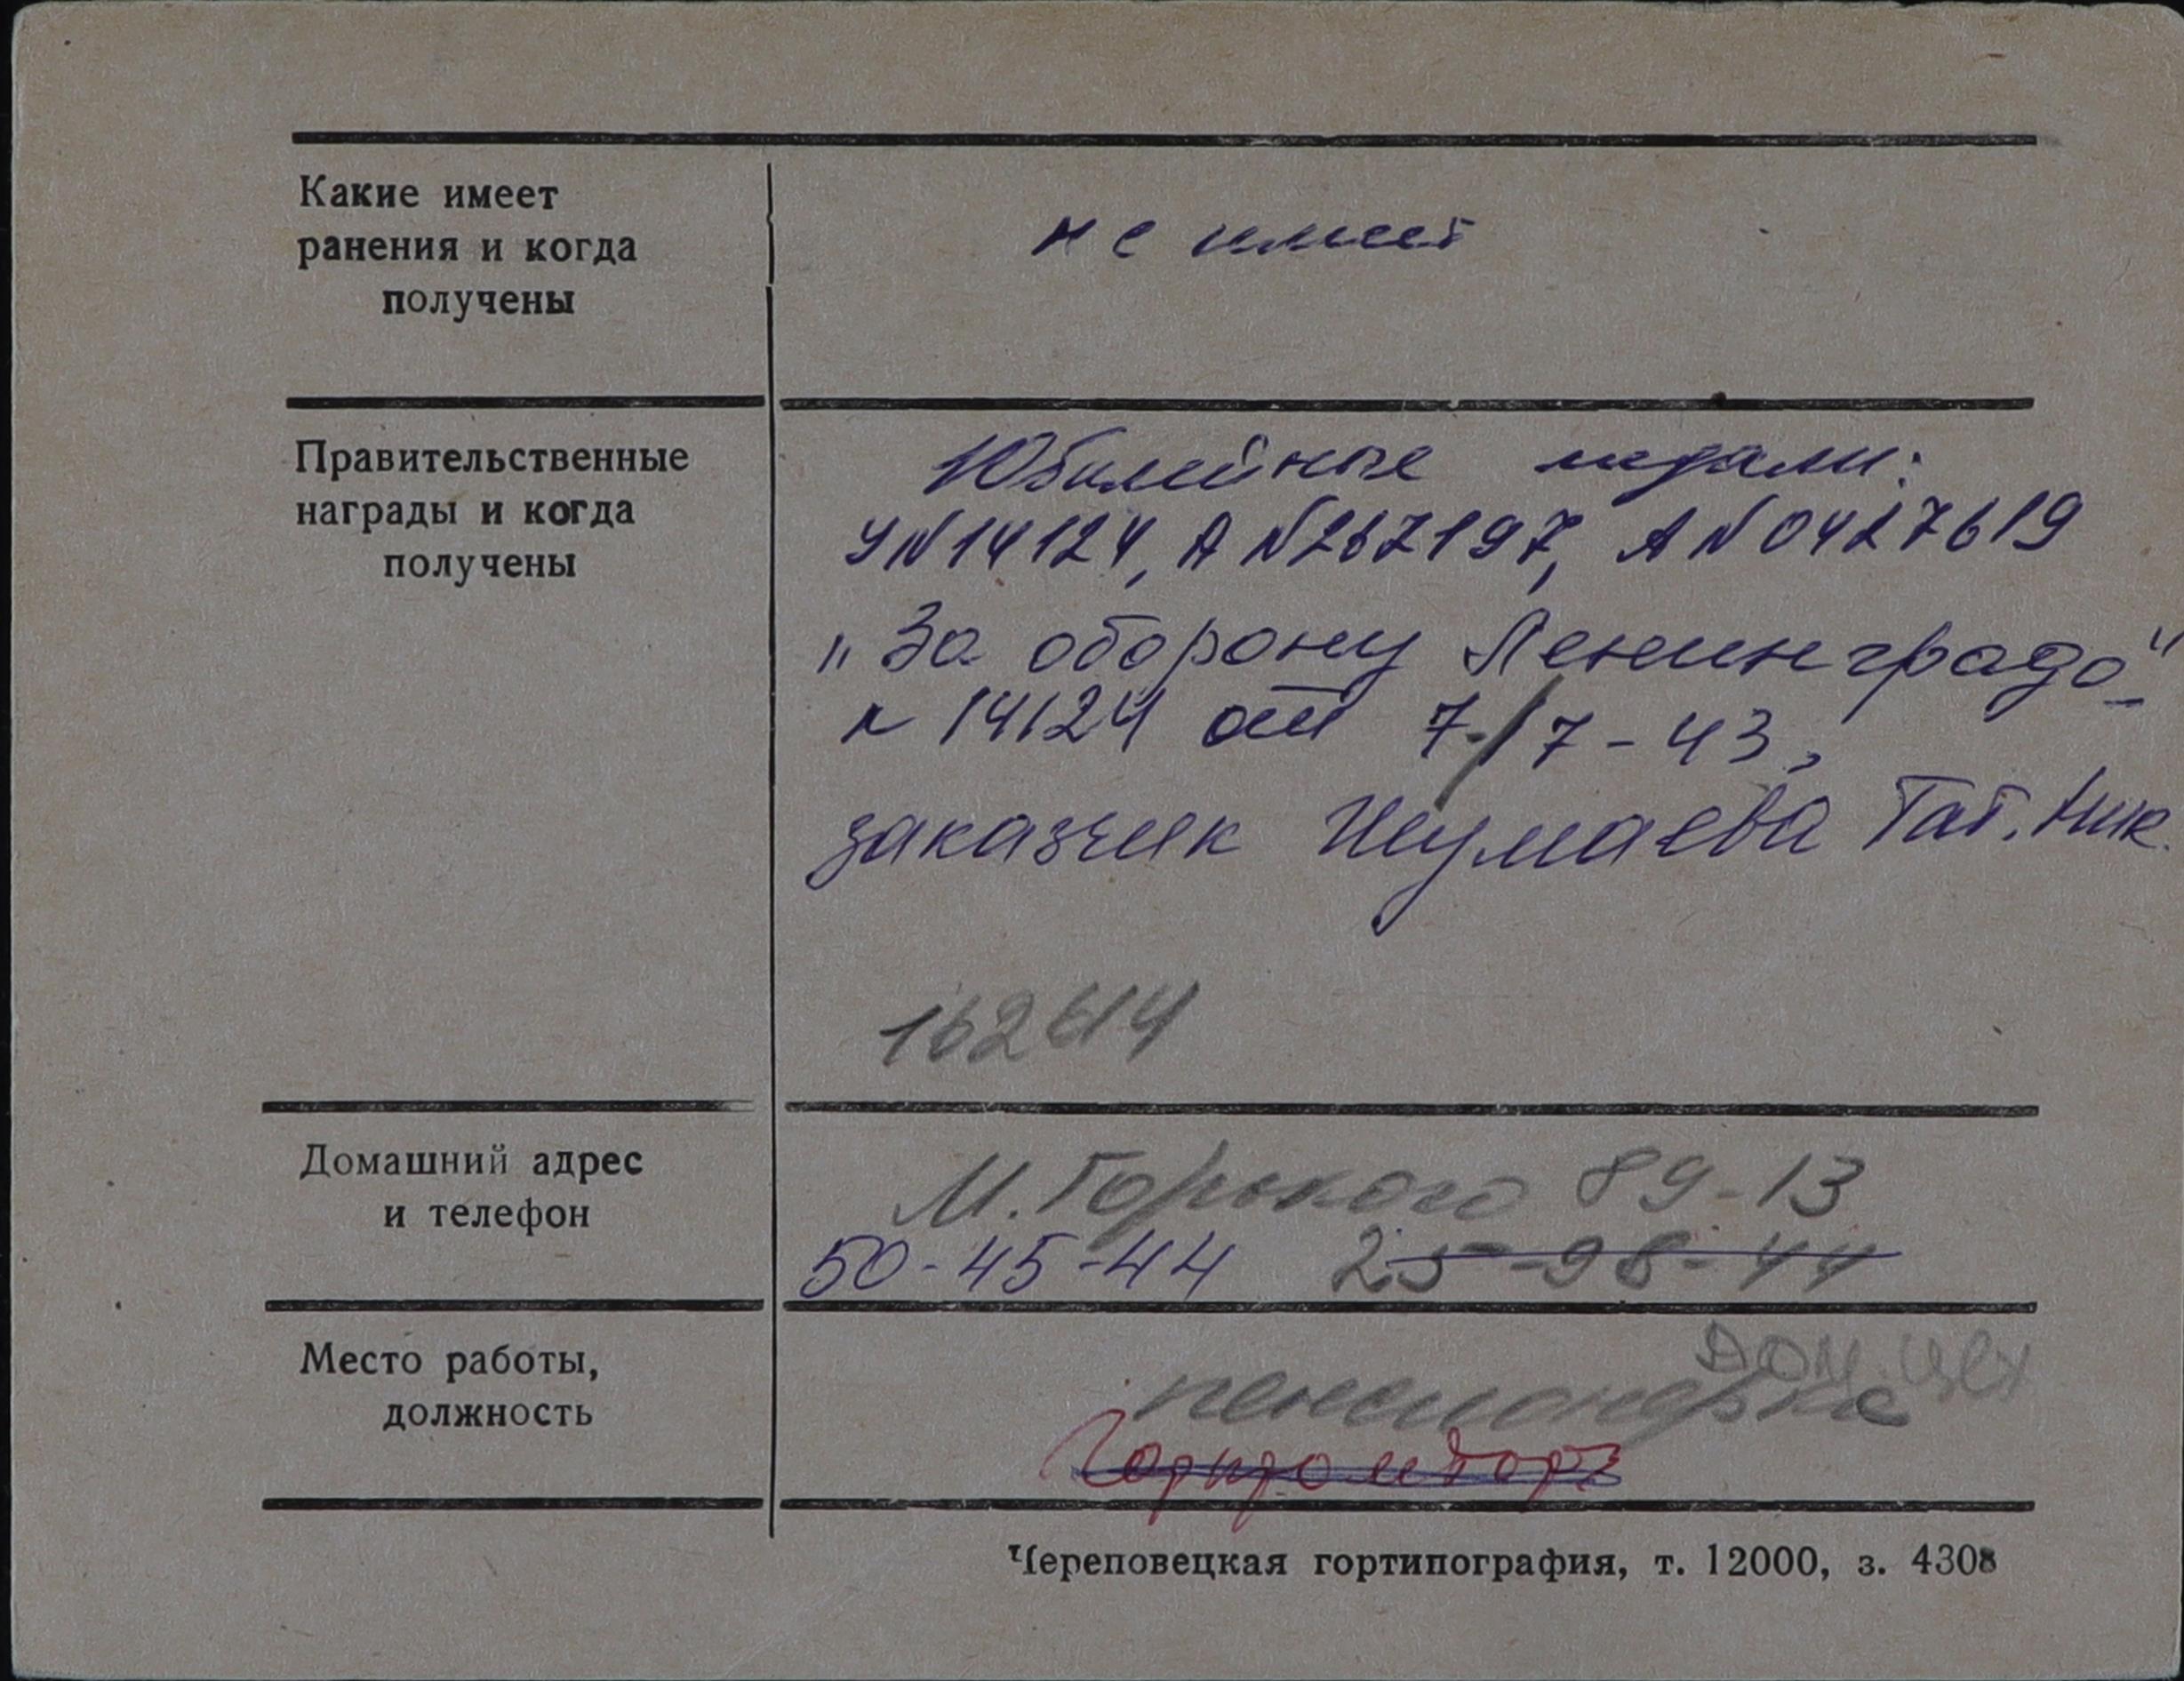 Какие имеет
ранения и когда
получены
не имеет
Правительственные
награды и когда
получены
Юбилейные медали:
У N 14124, А N 267197, А N 0427619
„За оборону Ленинграда"
N 14124 от 7/7-43,
заказчик Шумаева Тат. Ник.
162614
Домашний адрес
и телефон
М. Горького 89-13
50-45-44 25-98-44
Место работы,
должность
Дом. цех
пенсионерка
Горпромторг
Череповецкая гортипография, т. 12000, з. 4308